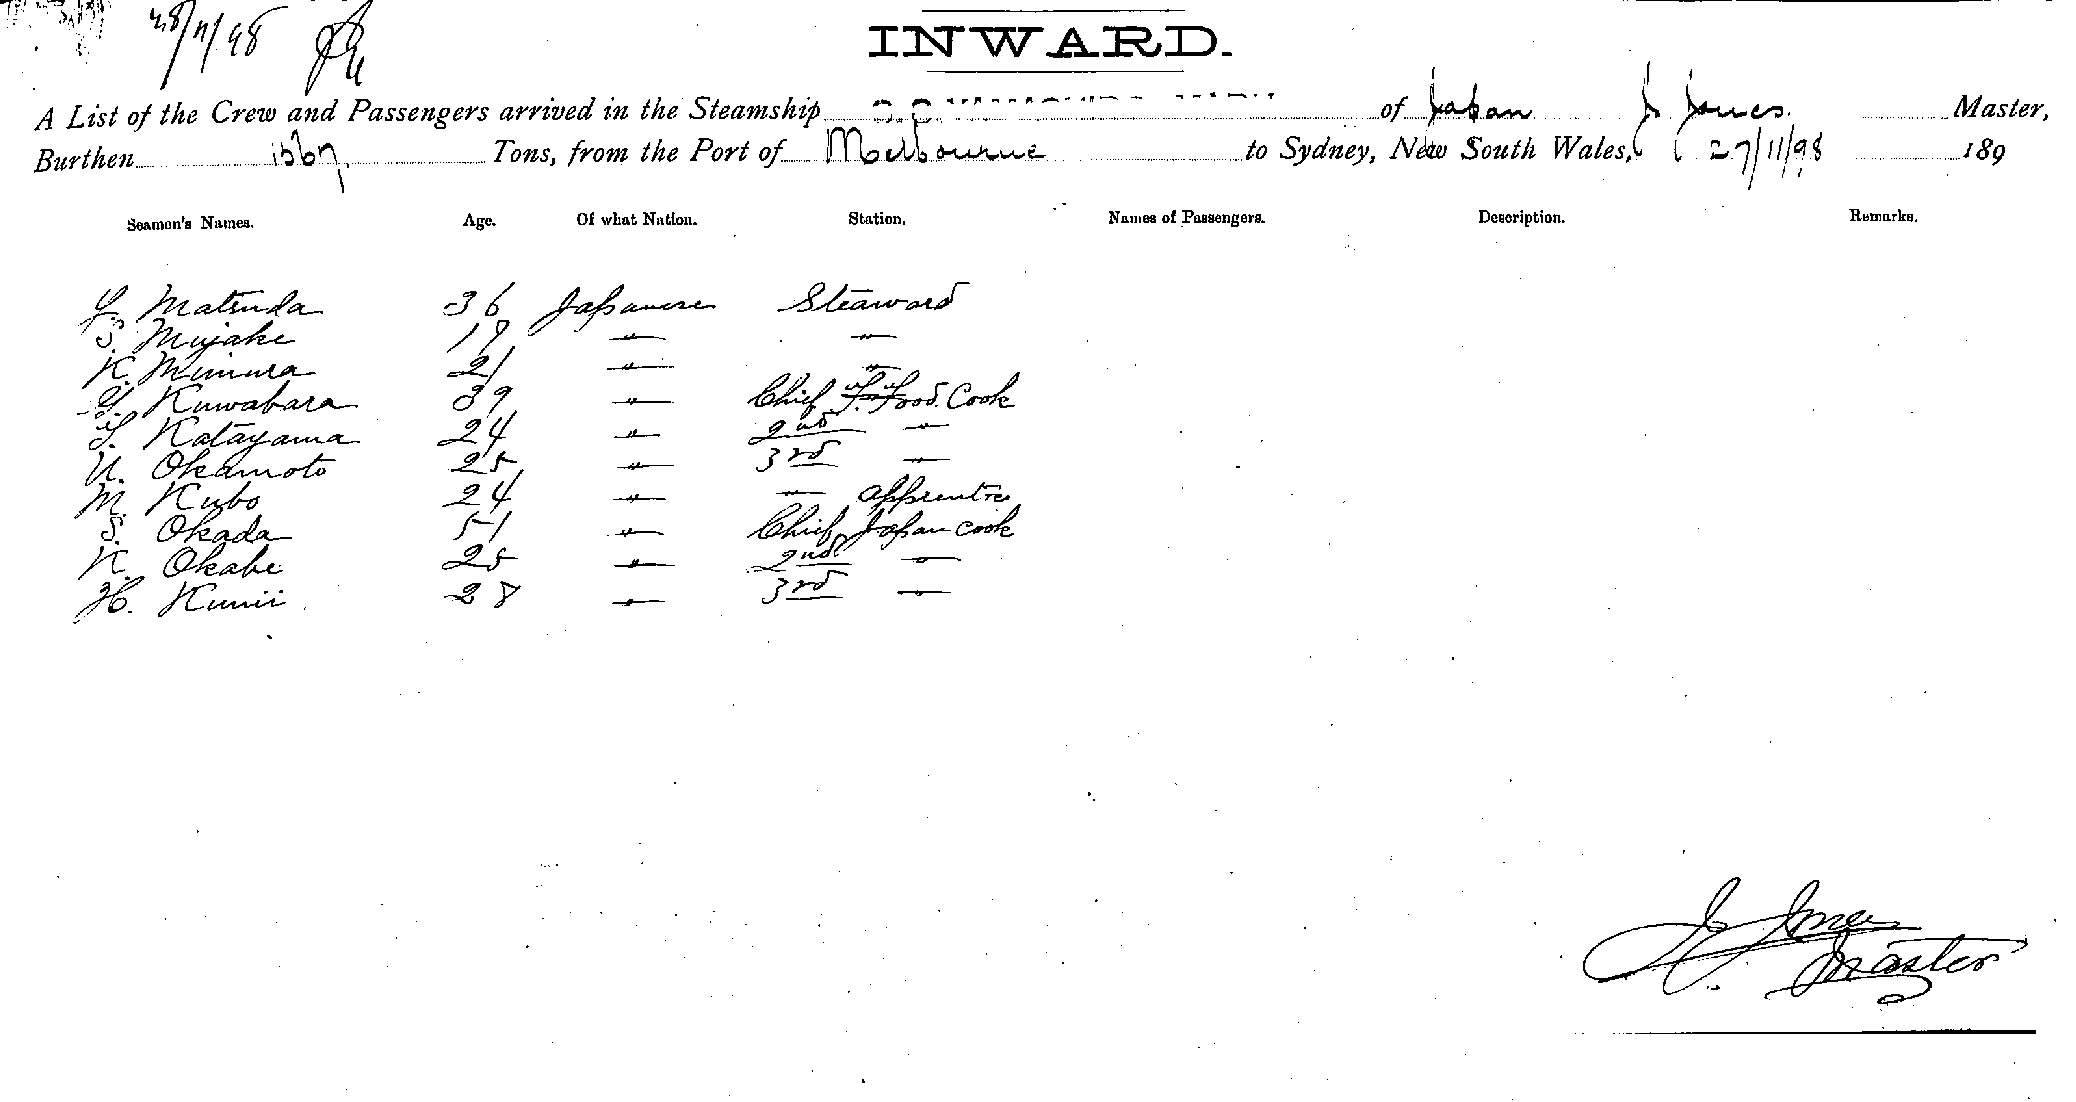 28/11/98
INWARD.
A List of the Crew and Passengers arrived in the Steamship of Japan J Jones. Master,
Burthen Tons, from the Port of Melbourne to Sydney, New South Wales, 27/11/98 189
Seamen's Names. Age. Of what Nation. Station. Names of Passengers. Description. Remarks.
Y. Matsuda 36 Japanese Steaward
S. Miyake 19 — " — — " —
K. Mimura 21 — " — — " —
Y. Kuwabara 39 — " — Chief Food Cook
T. Katayama 24 — " — 2nd — " —
U. Okamoto 25 — " — 3rd — " —
M. Kubo 24 — " — — " — apprentice
S. Okada 51 — " — Chief Japan cook
K. Okabe 25 — " — 2nd — " —
H. Kunii 28 — " — 3rd — " —
J. Jones
Master